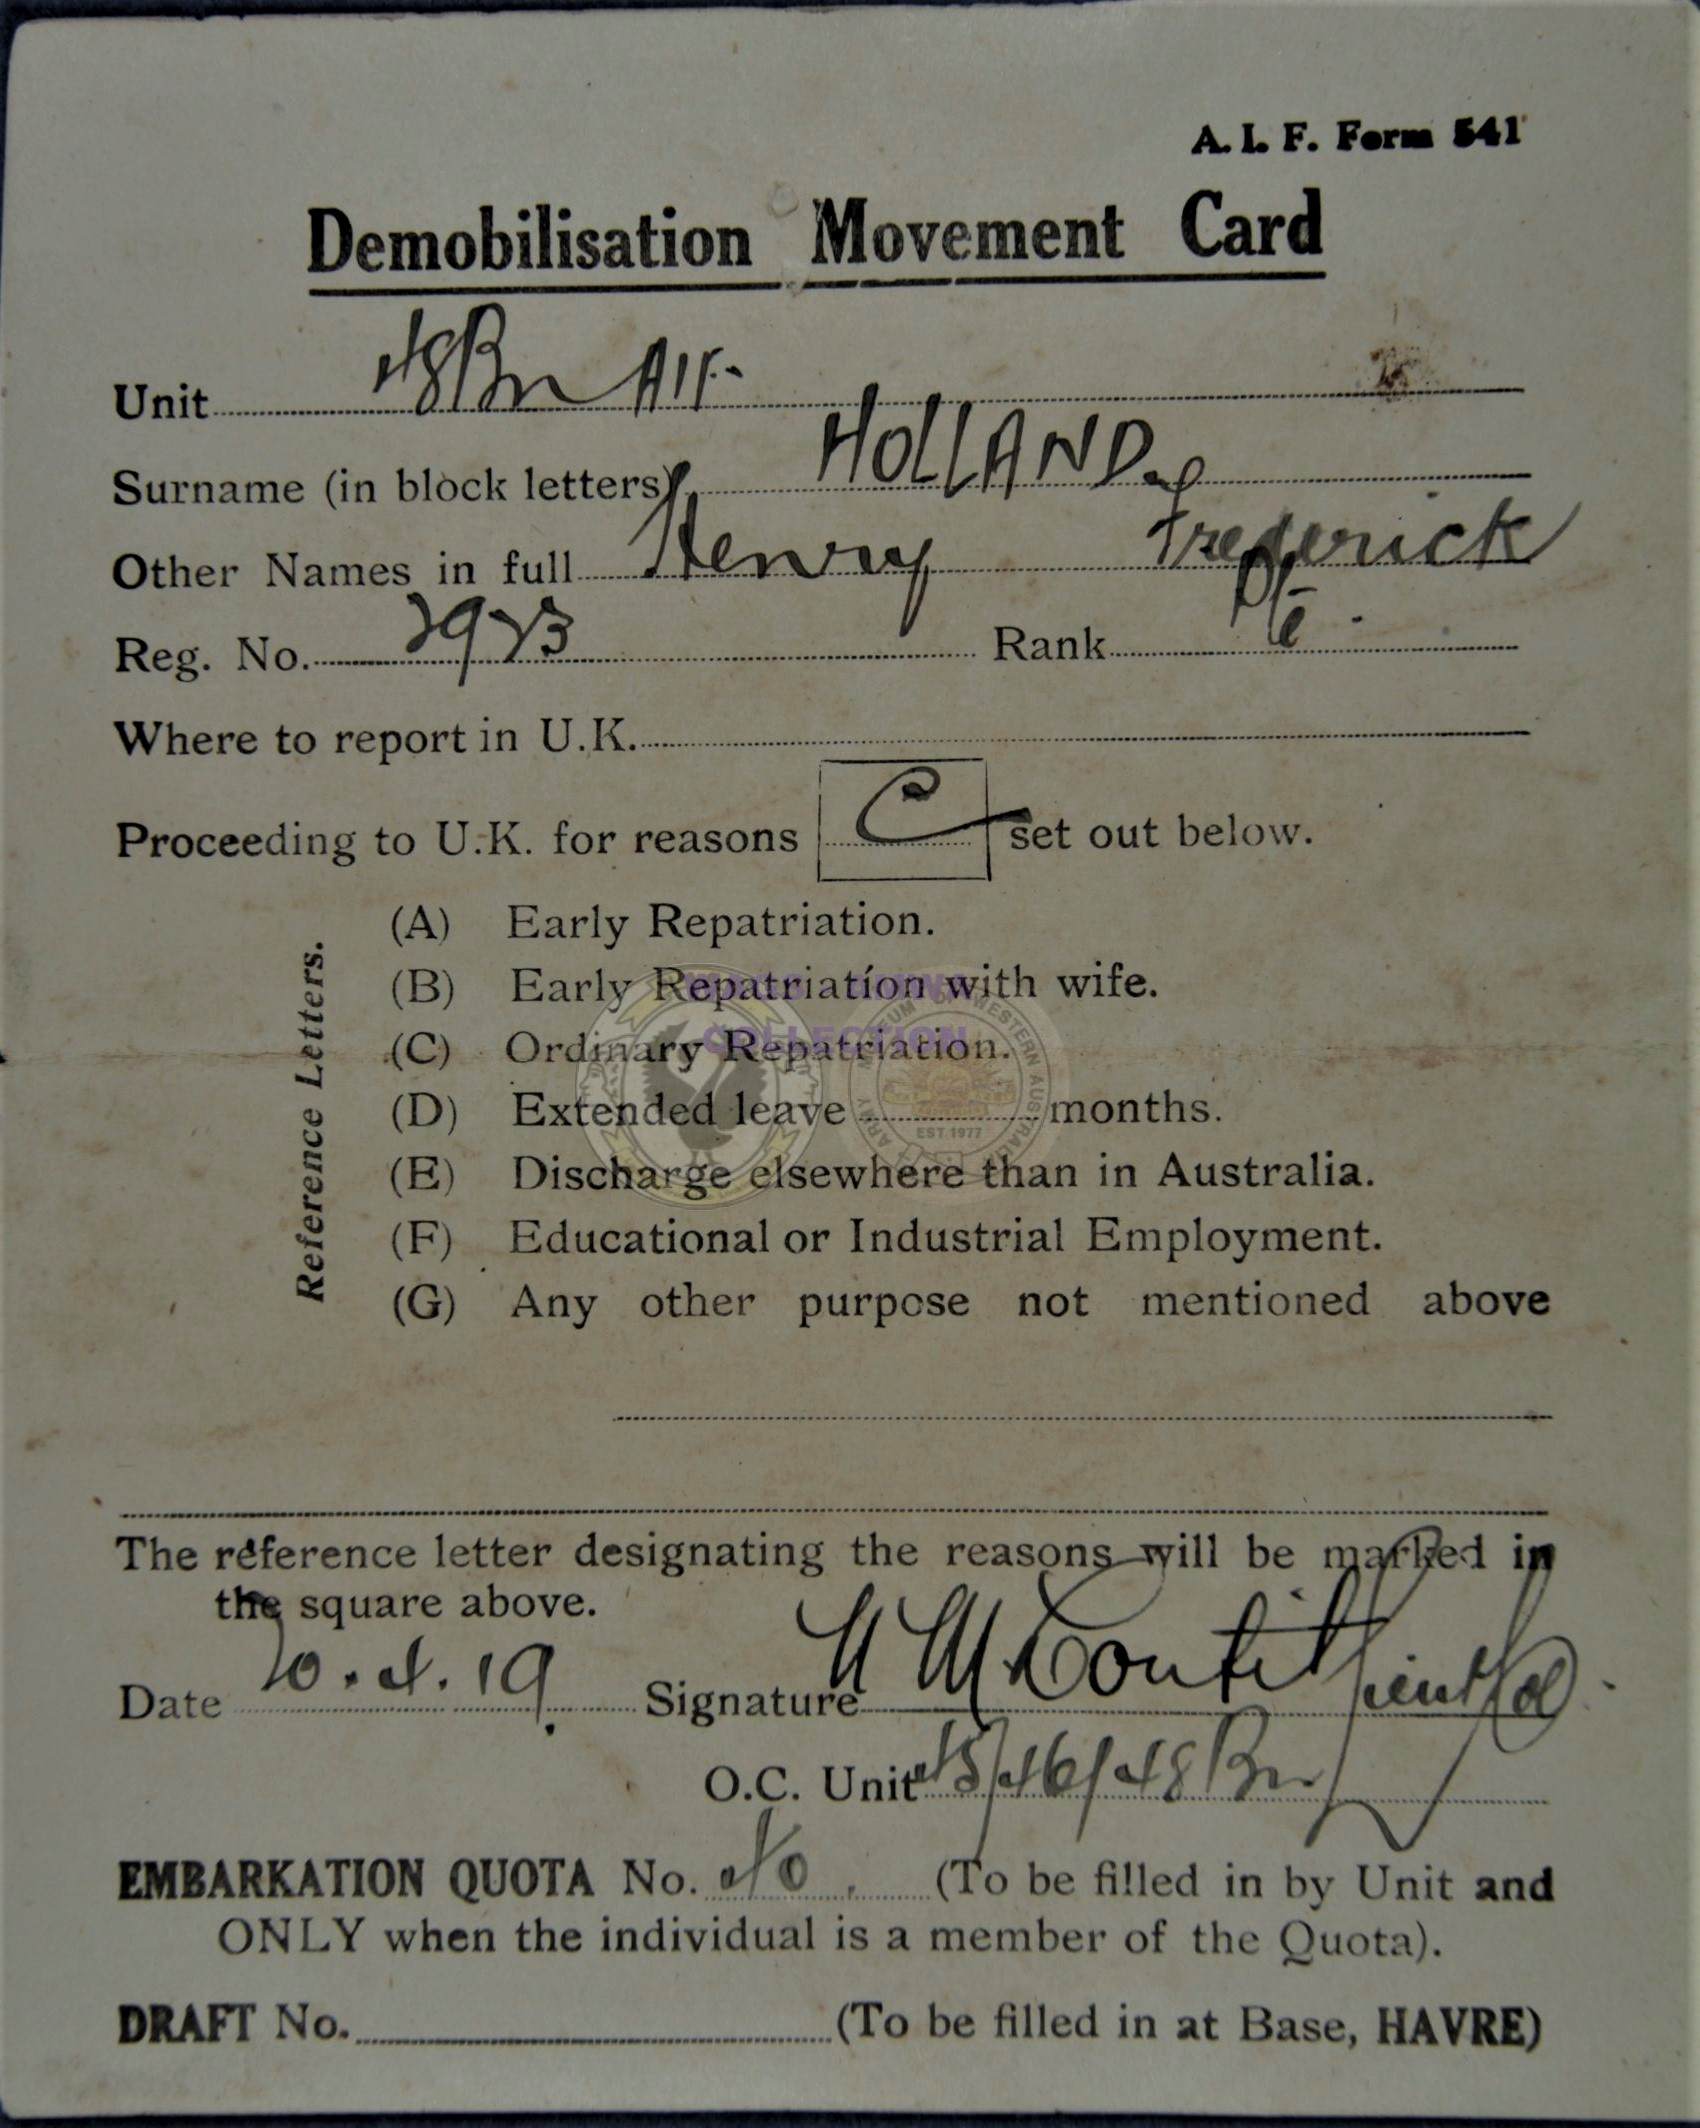 A. I. F. Form 541
Demobilisation Movement Card
Unit 48 Bn AIF.
Surname (in block letters) HOLLAND
Other Names in full Henry Frederick
Reg. No. 2973 Rank Pte.
Where to report in U.K.
Proceeding to U.K. for reasons C set out below.
Reference Letters.
(A) Early Repatriation.
(B) Early Repatriation with wife.
(C) Ordinary Repatriation.
(D) Extended leave months.
(E) Discharge elsewhere than in Australia.
(F) Educational or Industrial Employment.
(G) Any other purpose not mentioned above
COLLECTION
ARMY MUSEUM OF WESTERN AUSTRALIA
EST 1977
The reference letter designating the reasons will be marked in
the square above.
Date 20.4.19. Signature Lieut Col.
O.C. Unit 45/46/48 Bn
EMBARKATION QUOTA No. 40. (To be filled in by Unit and
ONLY when the individual is a member of the Quota).
DRAFT No. (To be filled in at Base, HAVRE)